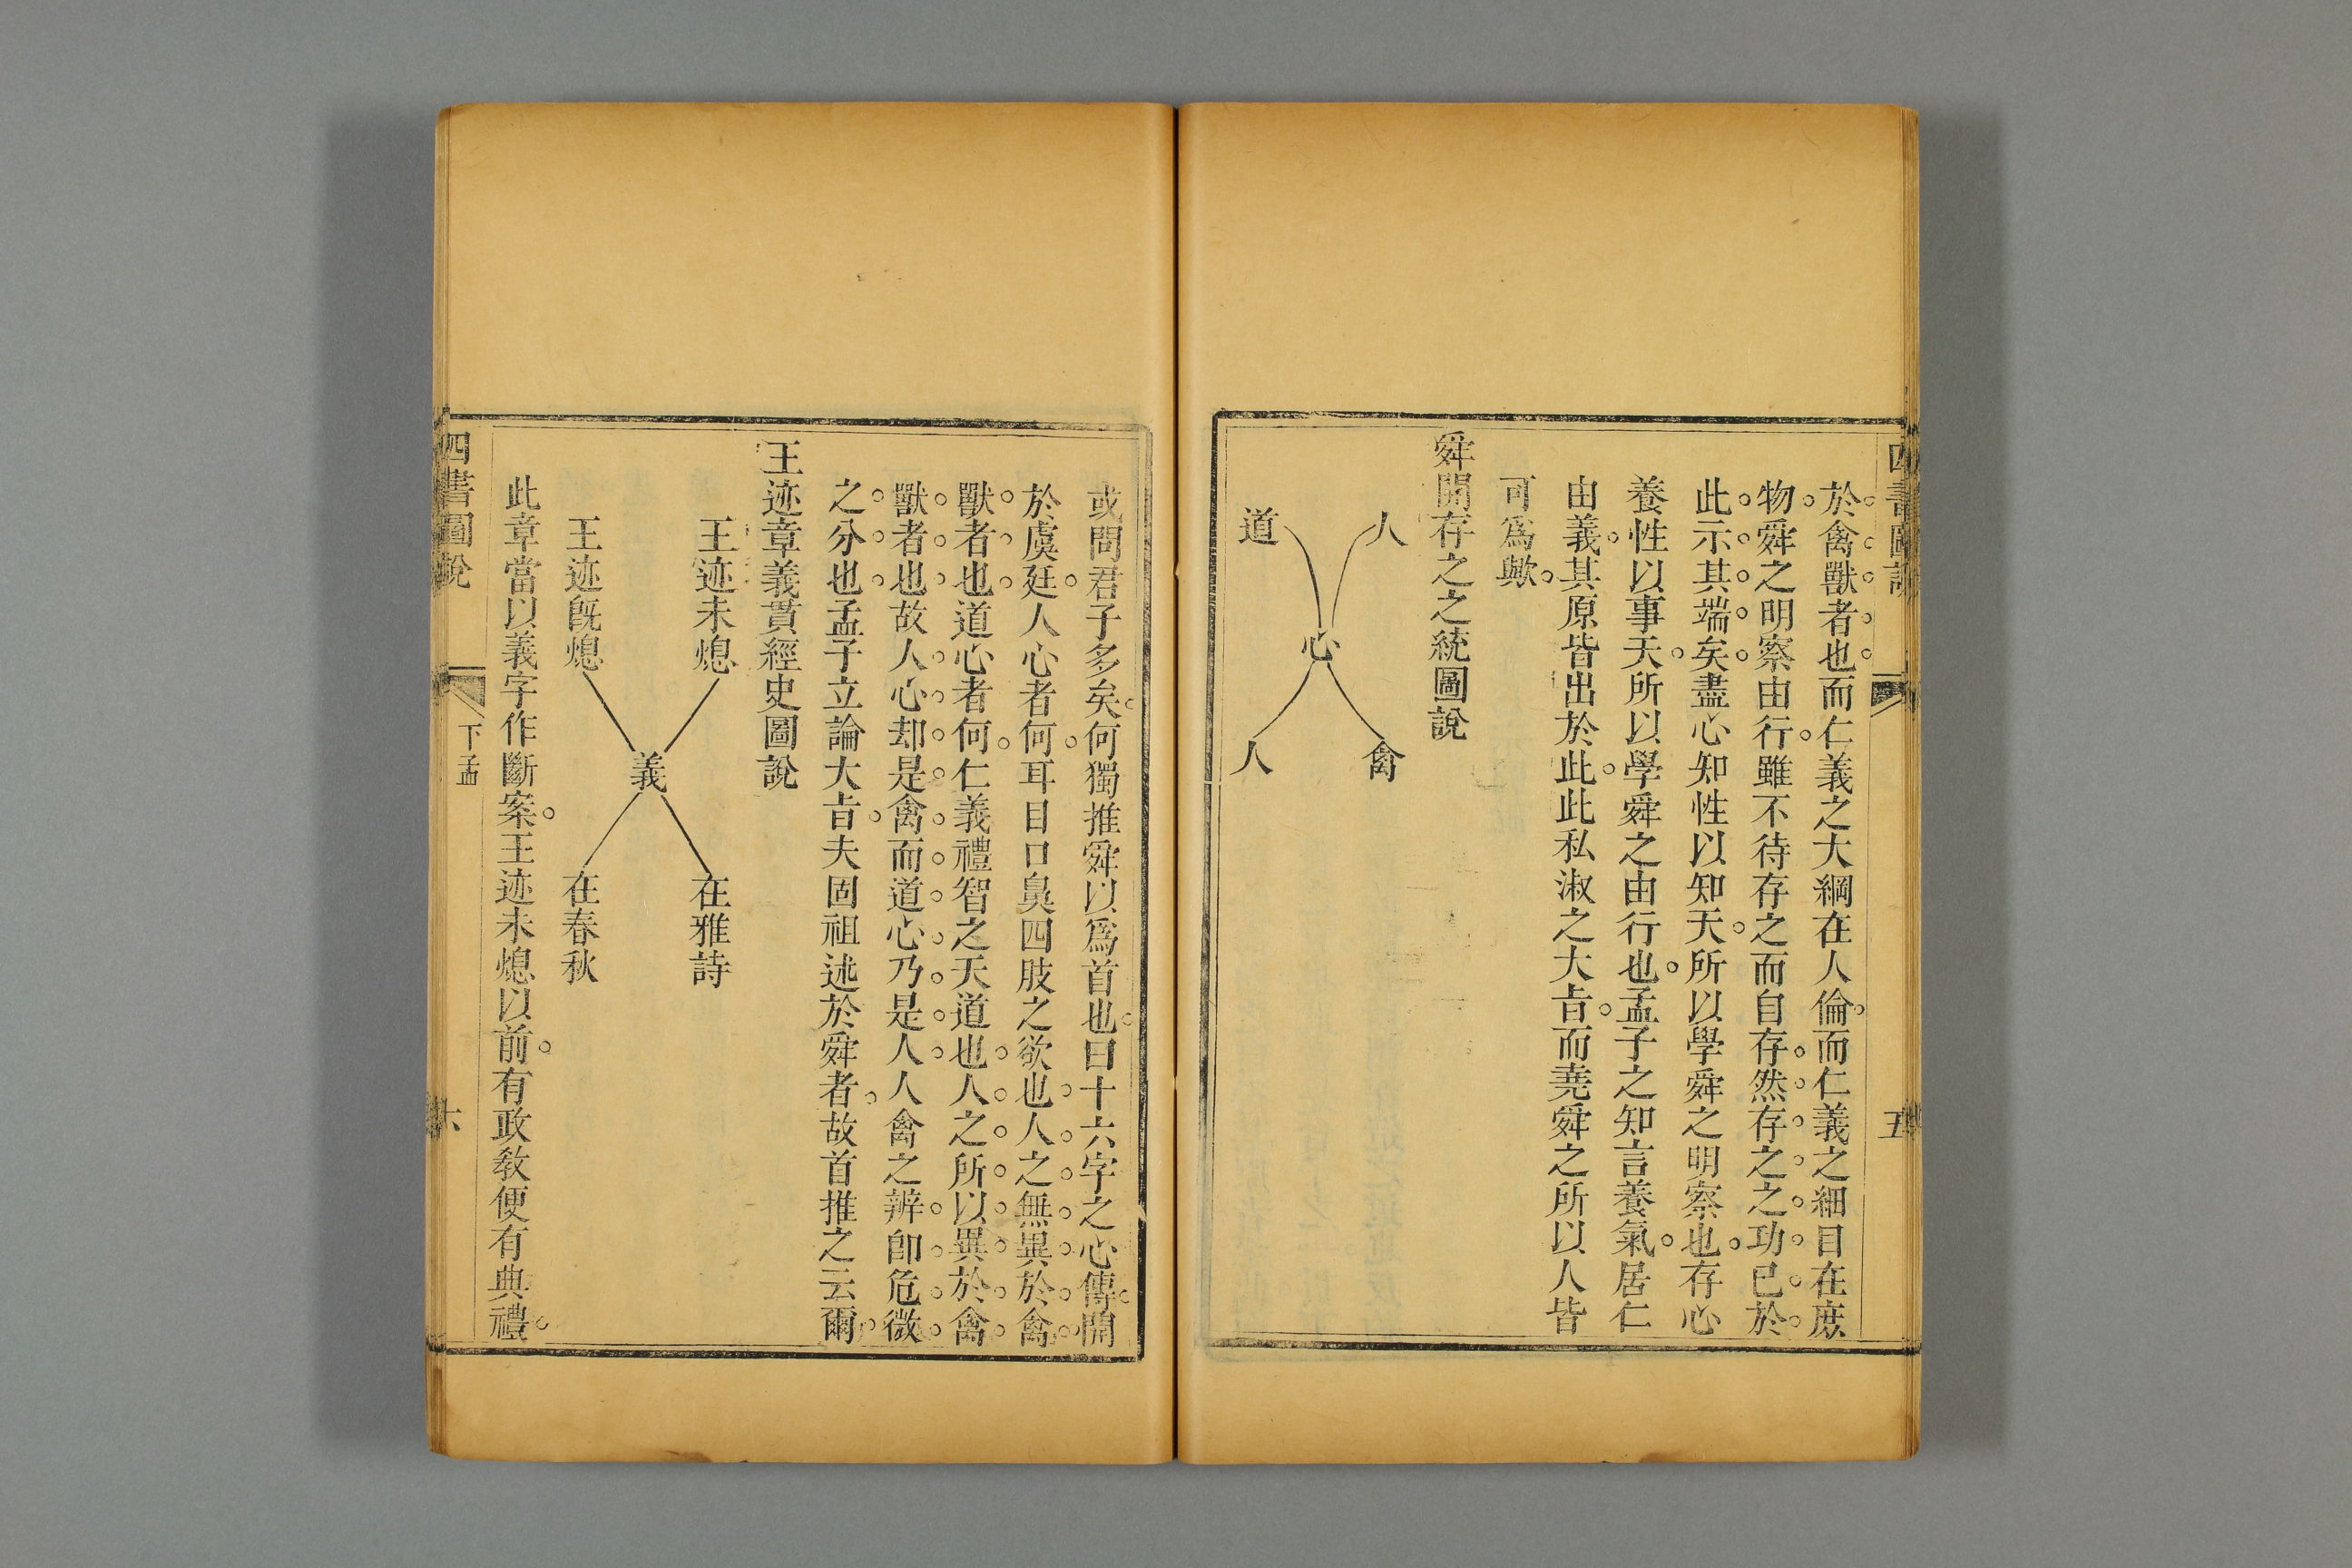 四書圖說
五
於禽獸者也而仁義之大綱在人倫而仁義之細目在庶
物舜之明察由行雖不待存之而自存然存之之功已於
此示其端矣盡心知性以知天所以學舜之明察也存心
養性以事天所以學舜之由行也孟子之知言養氣居仁
由義其原皆出於此此私淑之大㫖而堯舜之所以人皆
可爲歟
舜開存之之統圖說
人
道
心
禽
人
或問君子多矣何獨推舜以爲首也曰十六字之心傳開
於虞廷人心者何耳目口鼻四肢之欲也人之無異於禽
獸者也道心者何仁義禮智之天道也人之所以異於禽
獸者也故人心却是禽而道心乃是人人禽之辨卽危微
之分也孟子立論大㫖夫固祖述於舜者故首推之云爾
王迹章義貫經史圖說
王迹未熄
王迹旣熄
義
在雅詩
在春秋
此章當以義字作斷案王迹未熄以前有政敎便有典禮
四書圖說
下孟
六